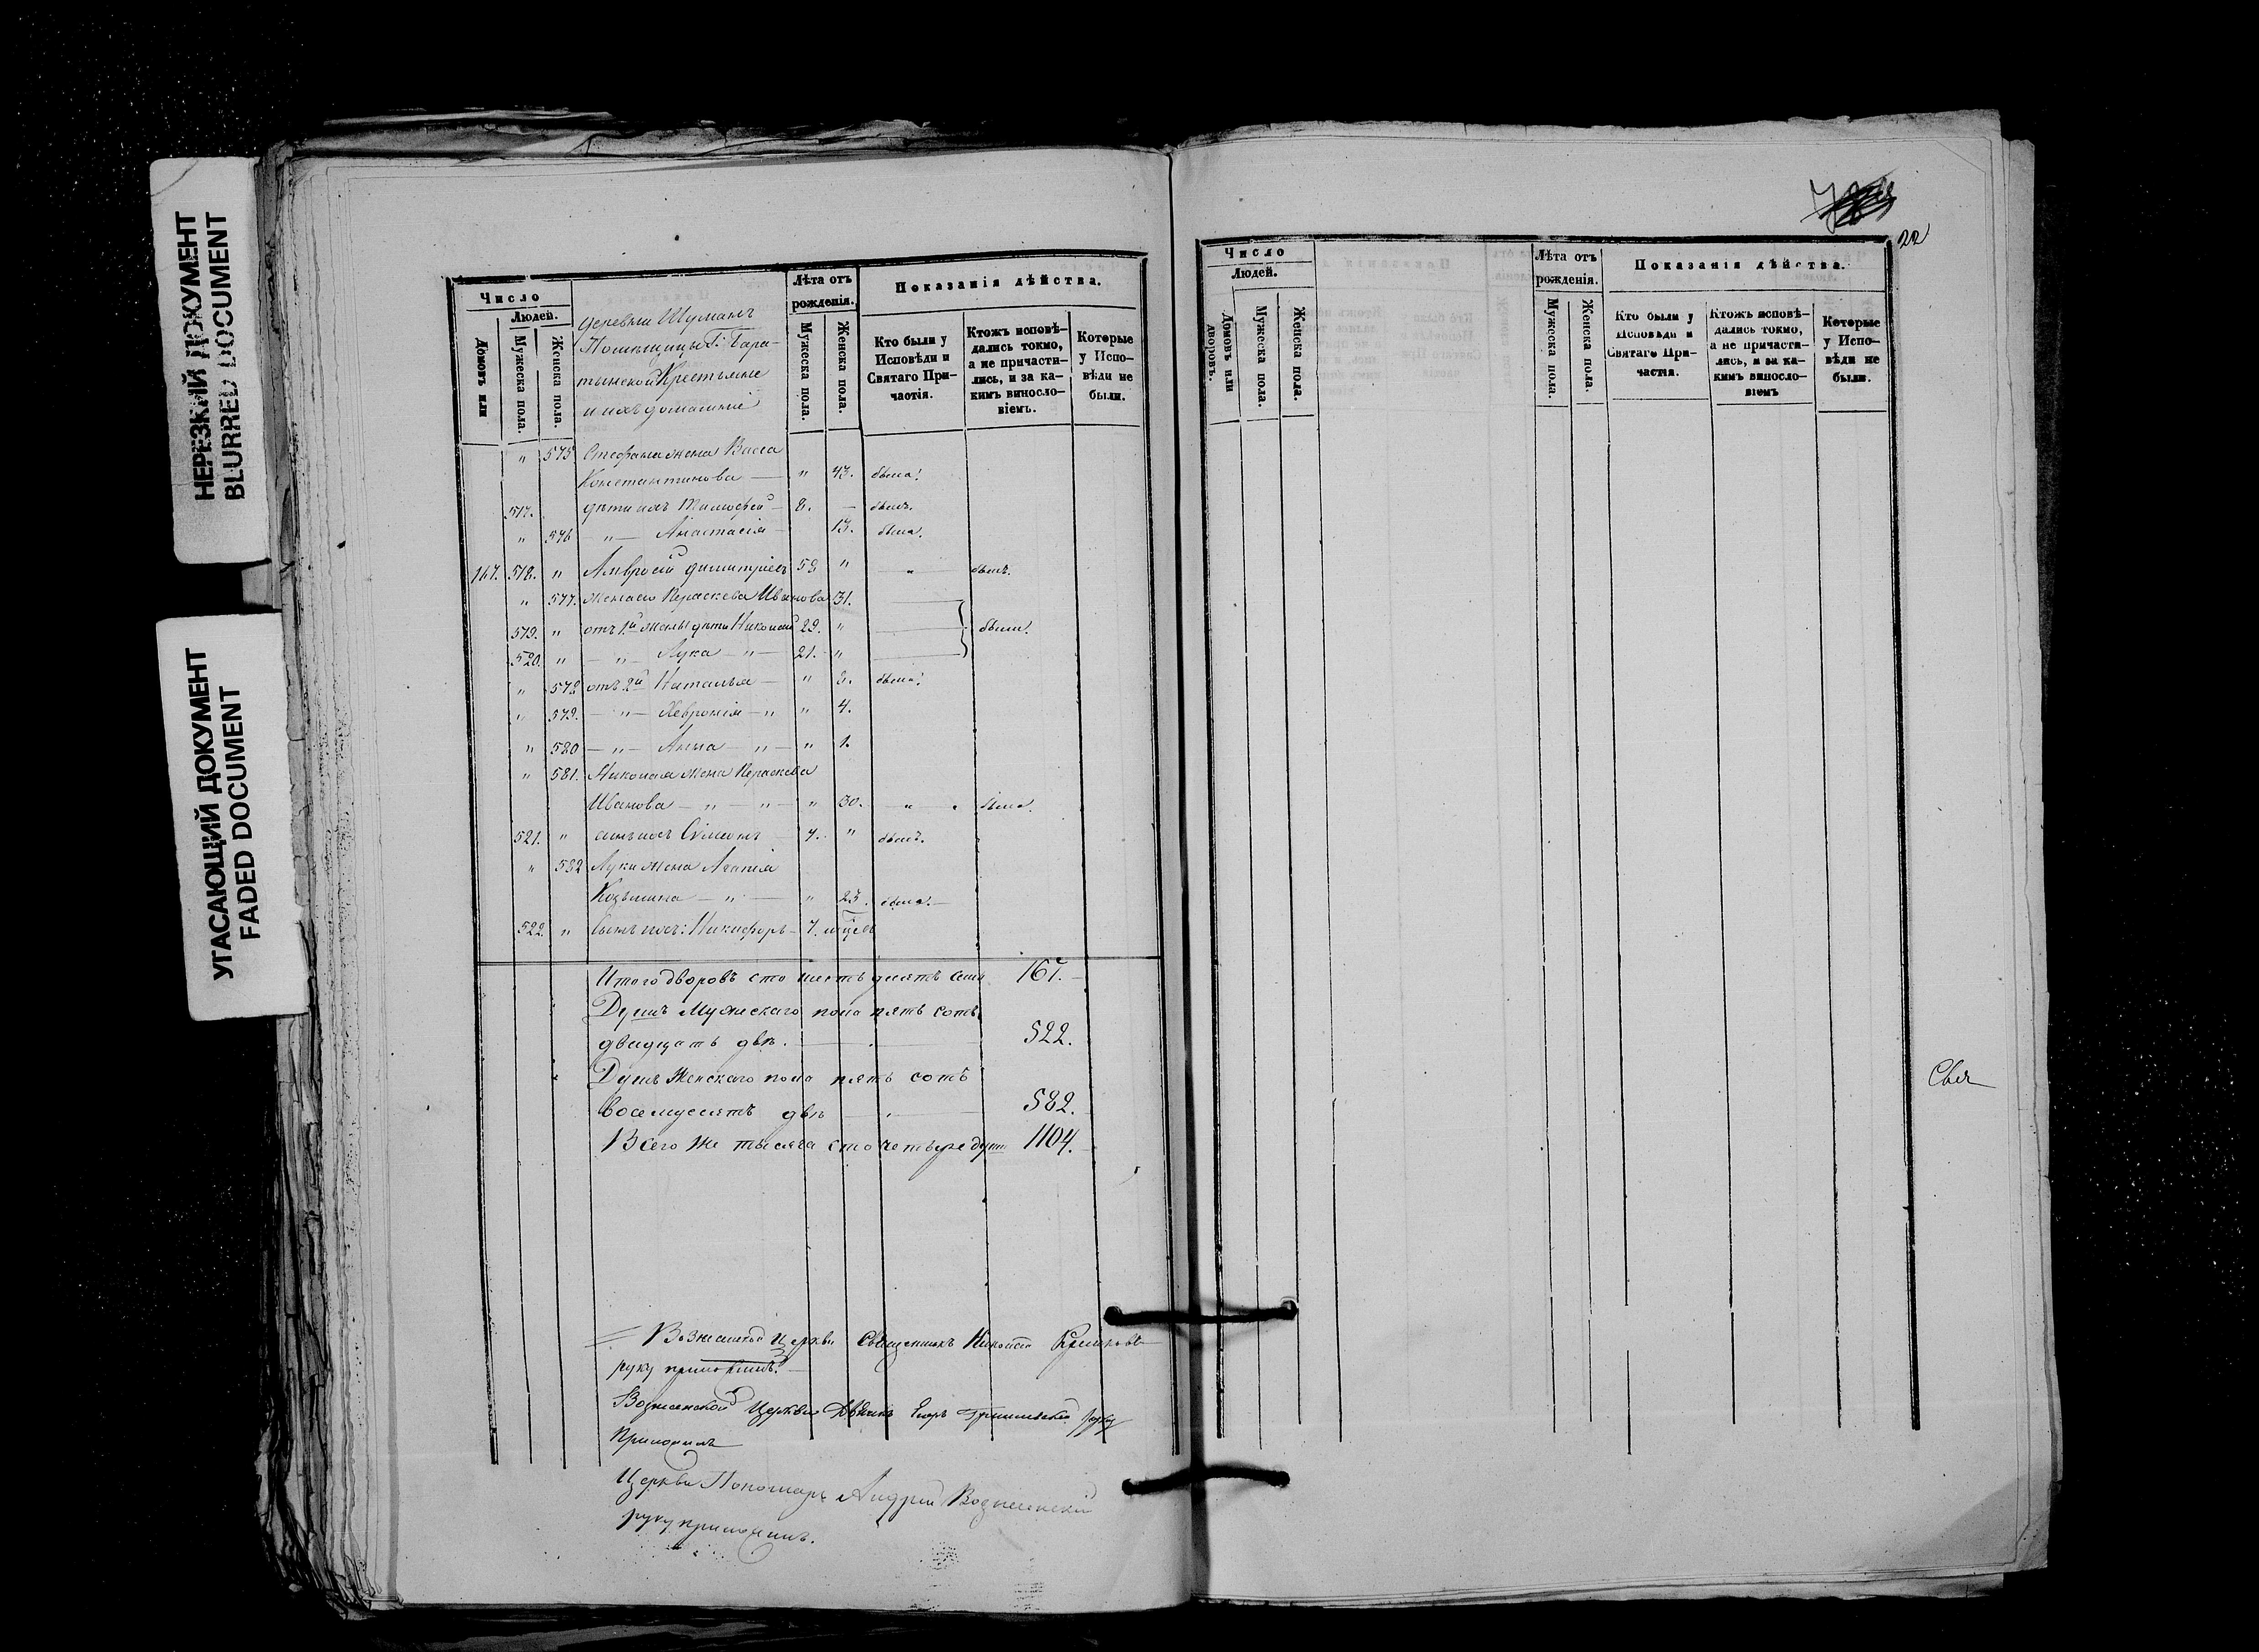 НЕРЕЗКИЙ ДОКУМЕНТ
BLURRED DOCUMENT
УГАСАЮЩИЙ ДОКУМЕНТ
FADED DOCUMENT
Число
Людей.
Домовъ или
Мужеска пола.
Женска пола.
деревни Шуманъ
Помѣщицы Г. Бара-
тынской Крестьяне
и ихъ домашніе
Лѣта отъ
рожденія.
Мужеска пола.
Женска пола.
Показанія дѣйства.
Кто были у
Исповѣди и
Святаго При-
частія.
Ктожъ исповѣ-
дались токмо,
а не причасти-
лись, и за ка-
кимъ винosло-
віемъ.
Которые
у Испо-
вѣди не
были.
" 575 Стефана жена Васса
Константинова — " 43. была.
517. дѣти ихъ Тимофей — 8. — былъ.
" 576 — " — Анастасія — 13. была.
167. 518. " Амвросій Димитріевъ 59 " " былъ.
" 577. жена его Параскева Иванова 31.
519. " отъ 1й жены дѣти Николай 29. " были.
520. " — " — Лука — " — 21. "
" 578 отъ 2й Наталья — " 8. была.
" 579. — " — Февронія — " " 4.
" 580 — " — Анна — " — " 1.
" 581. Николая жена Параскева
Иванова — " — " — " 30. " была.
521. " сынъ ихъ Симеонъ 7. " былъ.
" 582 Луки жена Агапія
Козьмина — " — " 23. была.
522. " Сынъ ихъ: Никифоръ — 7. мѣсяц.
Итого дворовъ сто шестьдесятъ семь 167.
Душъ Мужескаго пола пять сотъ
двадцать двѣ. 522.
Душъ Женскаго пола пять сотъ
восемдесятъ двѣ 582.
Всего же тысяча сто четыре души 1104.
Вознесенской Церкви Священникъ Николай
руку приложилъ.
Вознесенской Церкви Дьячокъ Егоръ руку
Приложилъ
Церкви Пономарь Андрей Вознесенскій
руку приложилъ.
22
Число
Людей.
Домовъ или
дворовъ.
Мужеска пола.
Женска пола.
Лѣта отъ
рожденія.
Мужеска пола.
Женска пола.
Показанія дѣйства.
Кто были у
Исповѣди и
Святаго При-
частія.
Ктожъ исповѣ-
дались токмо,
а не причасти-
лись, и за ка-
кимъ винosло-
віемъ
Которые
у Испо-
вѣди не
были.
Свя